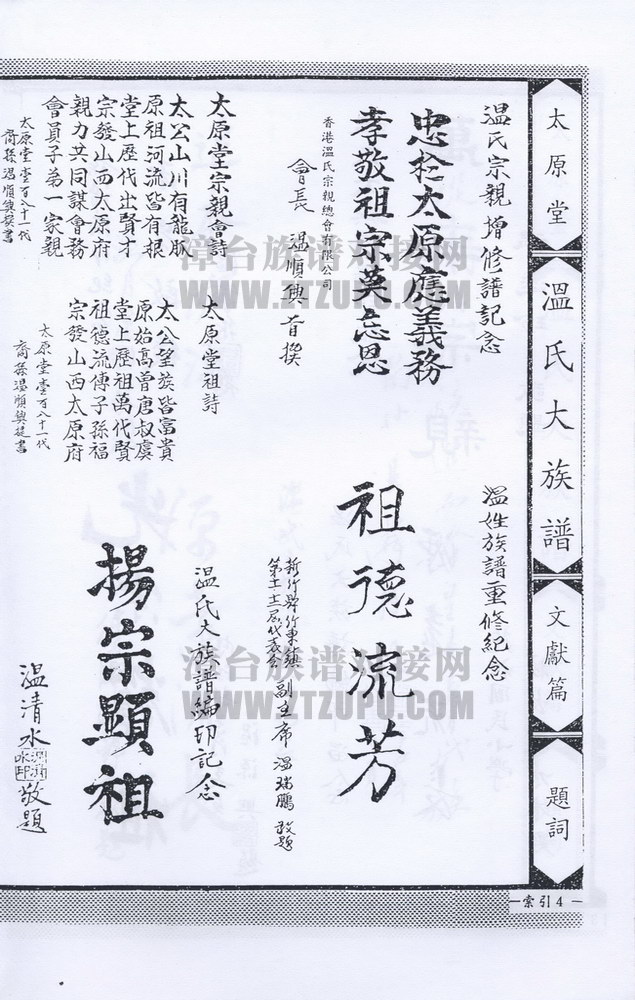 太原堂
溫氏大族譜
文獻篇
題詞
溫氏宗親增修譜記念
忠於太原應義務
孝敬祖宗莫忘恩
香港溫氏宗親總會有限公司
會長 溫順興首撰
太原堂宗親會詩
太公山川有龍脈
原祖河流皆有根
堂上歷代出賢才
宗發山西太原府
親力共同謀會務
會員子弟一家親
太原堂壹百八十一代
裔孫溫順興撰書
太原堂祖詩
太公望族皆富貴
原始高曾唐叔虞
堂上歷祖萬代賢
祖德流傳子孫福
宗發山西太原府
太原堂壹百八十一代
裔孫溫順興提書
溫姓族譜重修紀念
祖德流芳
新竹縣竹東鎮
代表會
副主席 溫瑞鵬 敬題
溫氏大族譜編印記念
揚宗顯祖
溫清水敬題
漳台族谱对接网
WWW.ZTZUPU.COM
漳台族谱对接网
WWW.ZTZUPU.COM
索引4